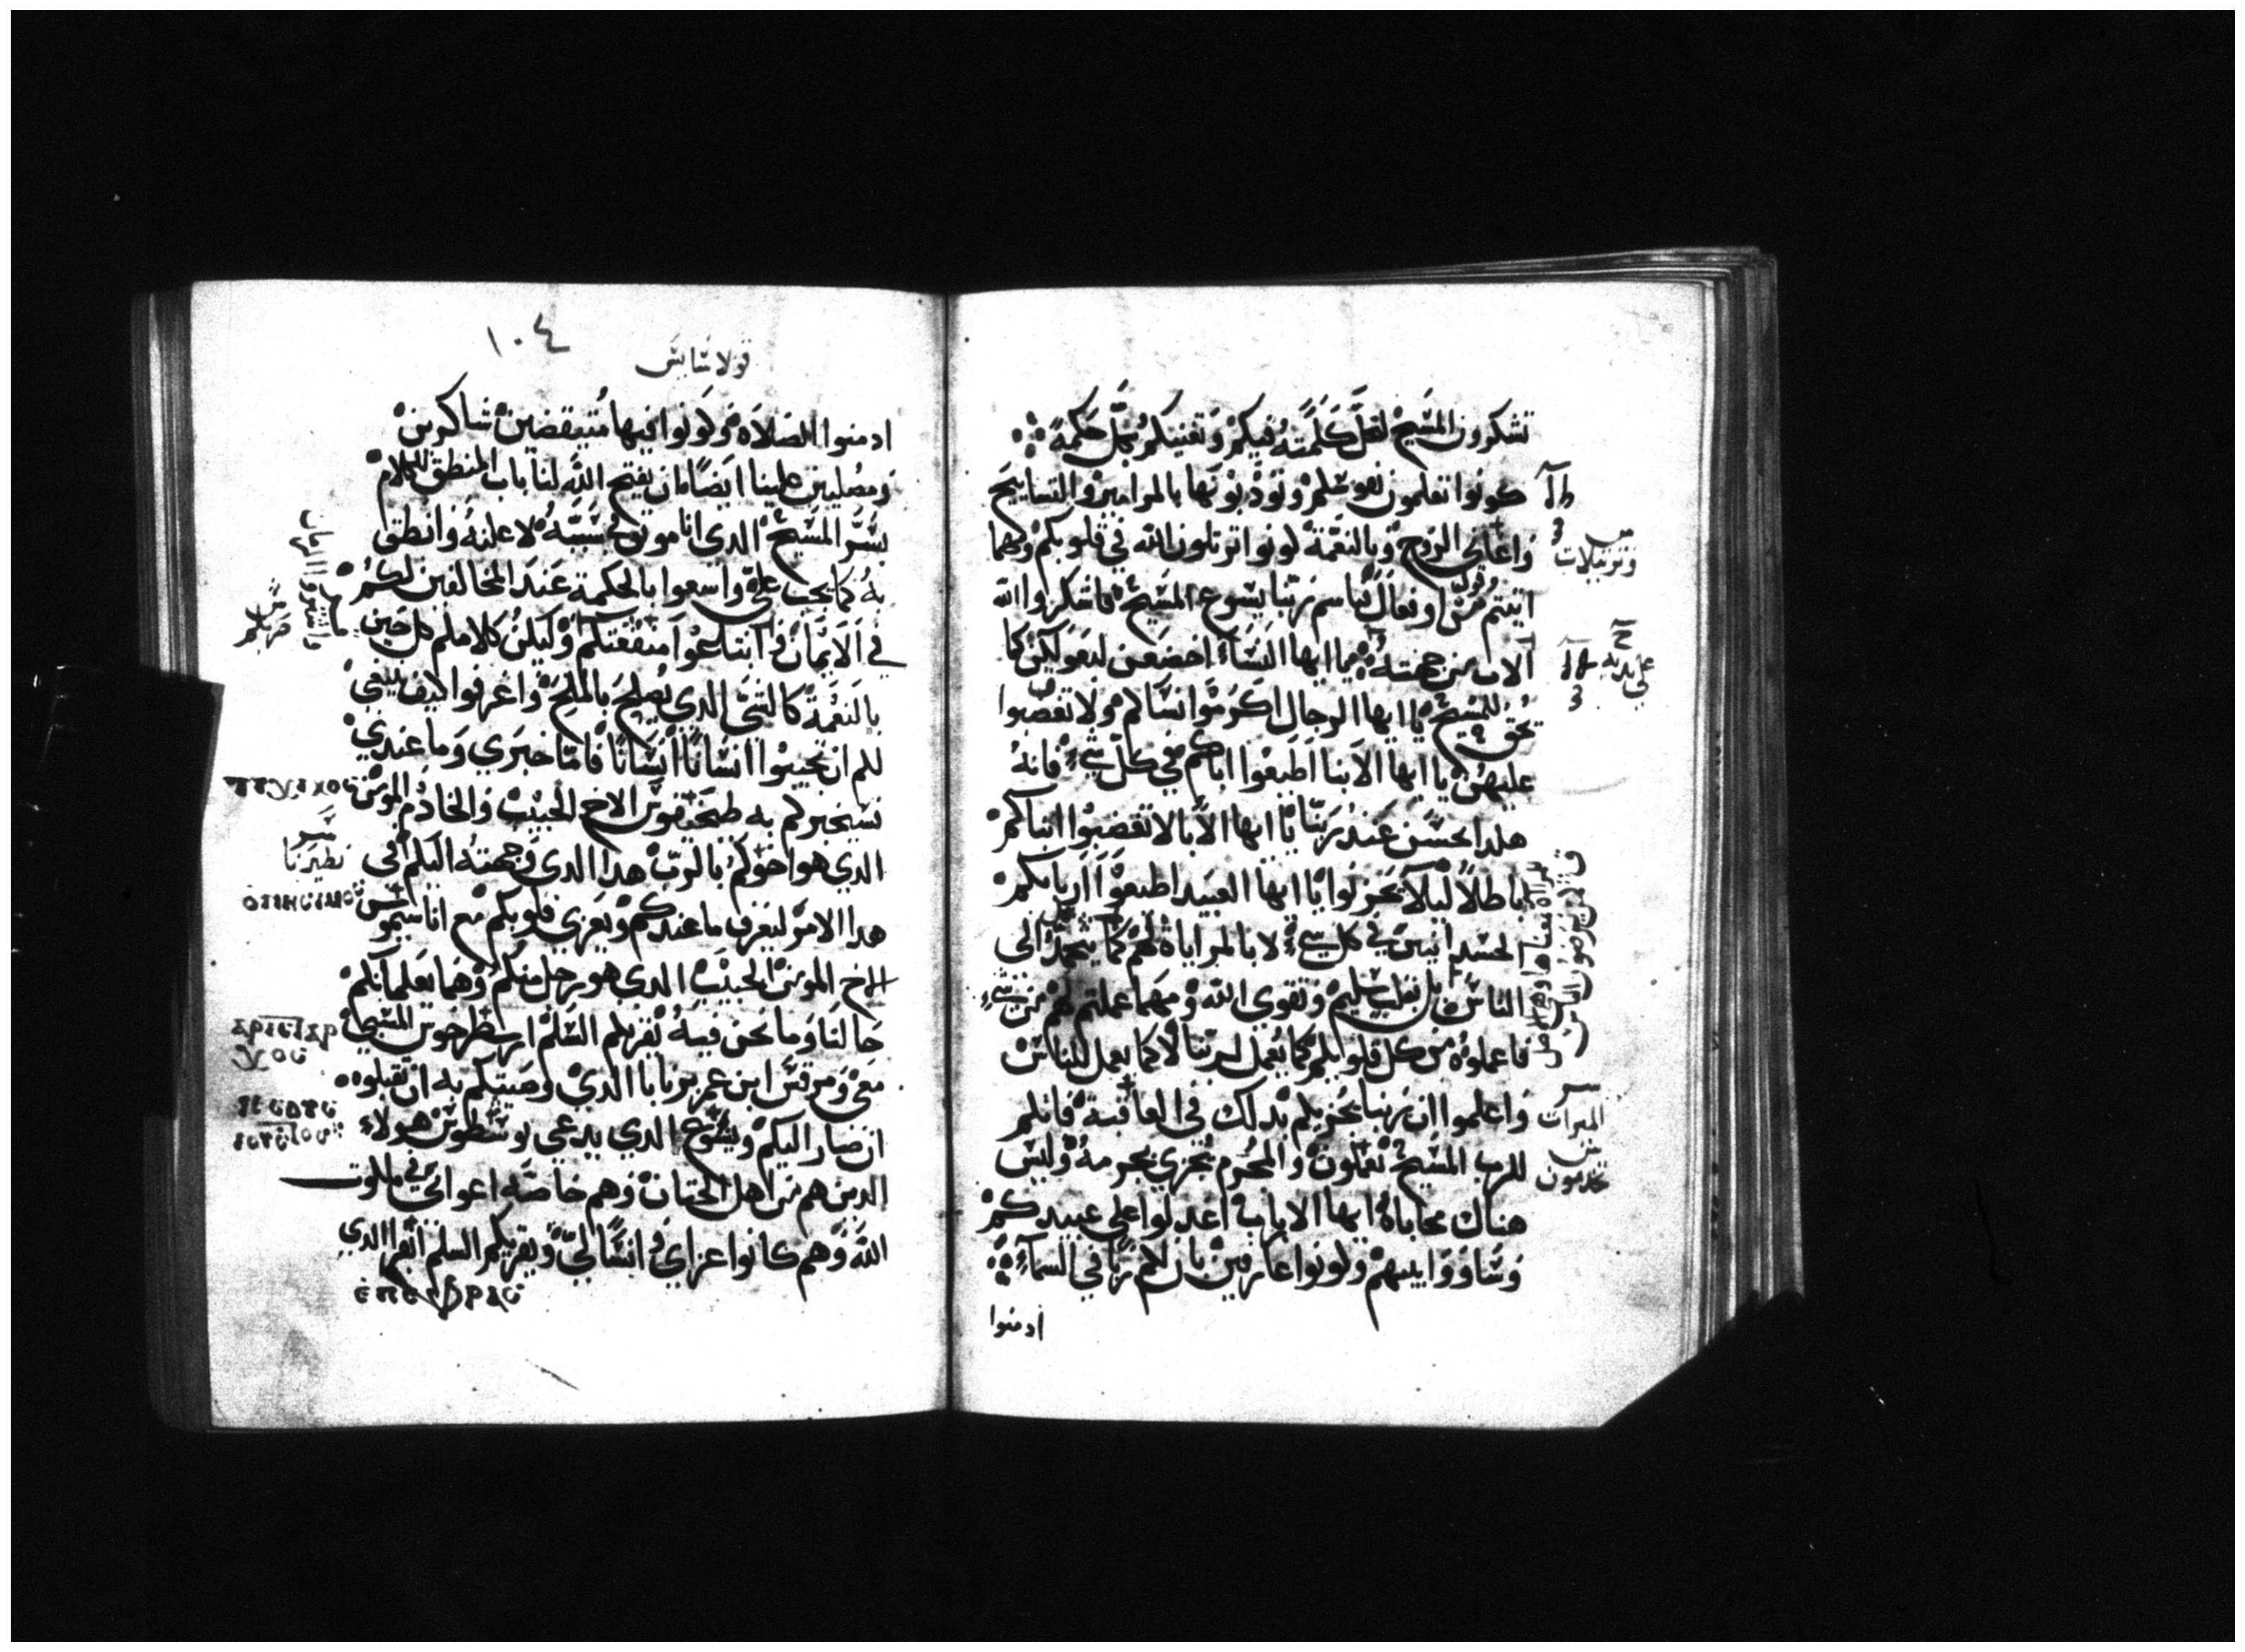 تشكرون المسيح لتحل كلمته فيكم وتغنيكم بكل حكمة
كونوا تعلمون نفوسكم وتودبونها بالمزامير والتسابيح
واغاني الروح وبالنعمة كونوا ترتلون الله في قلوبكم وكلما
اتيتم من قول او فعال فباسم ربنا يسوع المسيح فاشكروا الله
الاب من جهته يا ايها النسا اخضعن لبعولتكن كما
يحق للمسيح يا ايها الرجال اكرموا نساكم ولا تغضبوا
عليهن يا ايها الابنا اطيعوا اباكم في كل شي فانه
هكدا يحسن عند ربنا يا ايها الابا لا تغضبوا ابناكم
باطلا ليلا يحزنوا يا ايها العبيد اطيعوا اربابكم
الجسدانيين في كل شي لا بالمراياة لهم كما يتحمد الى
الناس بل بقلب سليم وتقوى الله ومهما عملتم لهم من شي
فاعملوه من كل قلوبكم كما يعمل لربنا لا كما يعمل للناس
واعلموا ان ربنا يجزيكم بدلك في العاقبة فانكم
للرب المسيح تعملون والمجرم يجزى بجرمه وليس
هناك محاباة ايها الارباب اعدلوا على عبيدكم
وساووا بينهم وكونوا عارفين بان لكم ربا في السما
وترتيلات
على يديه
الميراث
تخدمون
ادمنوا
١٠٤
قولاسايس
ادمنوا الصلاة وكونوا فيها متيقضين شاكرين
ومصليين علينا ايضا بان يفتح الله لنا باب المنطق للكلام
بسر المسيح الدي انا موثوق بسببه لاعلنه وانطق
به كما يجب علي واسعوا بالحكمة عند المخالفين لكم
في الايمان وابتاعوا منفعتكم وليكن كلامكم كل حين
بالنعمة كالشي الدي يصلح بالملح واعرفوا كيف ينبغي
لكم ان تجيبوا انسانا انسانا فاما خبري وما عندي
فسيخبركم به طيخيقوس الاخ الحبيب والخادم المومن
الدي هو اخوكم بالرب هدا الدي وجهته اليكم في
هدا الامر ليعرف ما عندكم ويعزي قلوبكم مع اناسيموس
الاخ المومن الحبيب الدي هو رجل منكم وهما يعلمانكم
حالنا وما نحن فيه يقريكم السلم ارسطرخوس المسبي
معي ومرقس ابن عم برنابا الدي وصيتكم به ان تقبلوه
ان صار اليكم ويشوع الدي يدعى يوسطوس هولاء
الدين هم من اهل الختان وهم خاصة اعواني في ملكوت
الله وهم كانوا عزاي وانسا لي ويقريكم السلم ابفرا الدي
نظيرنا